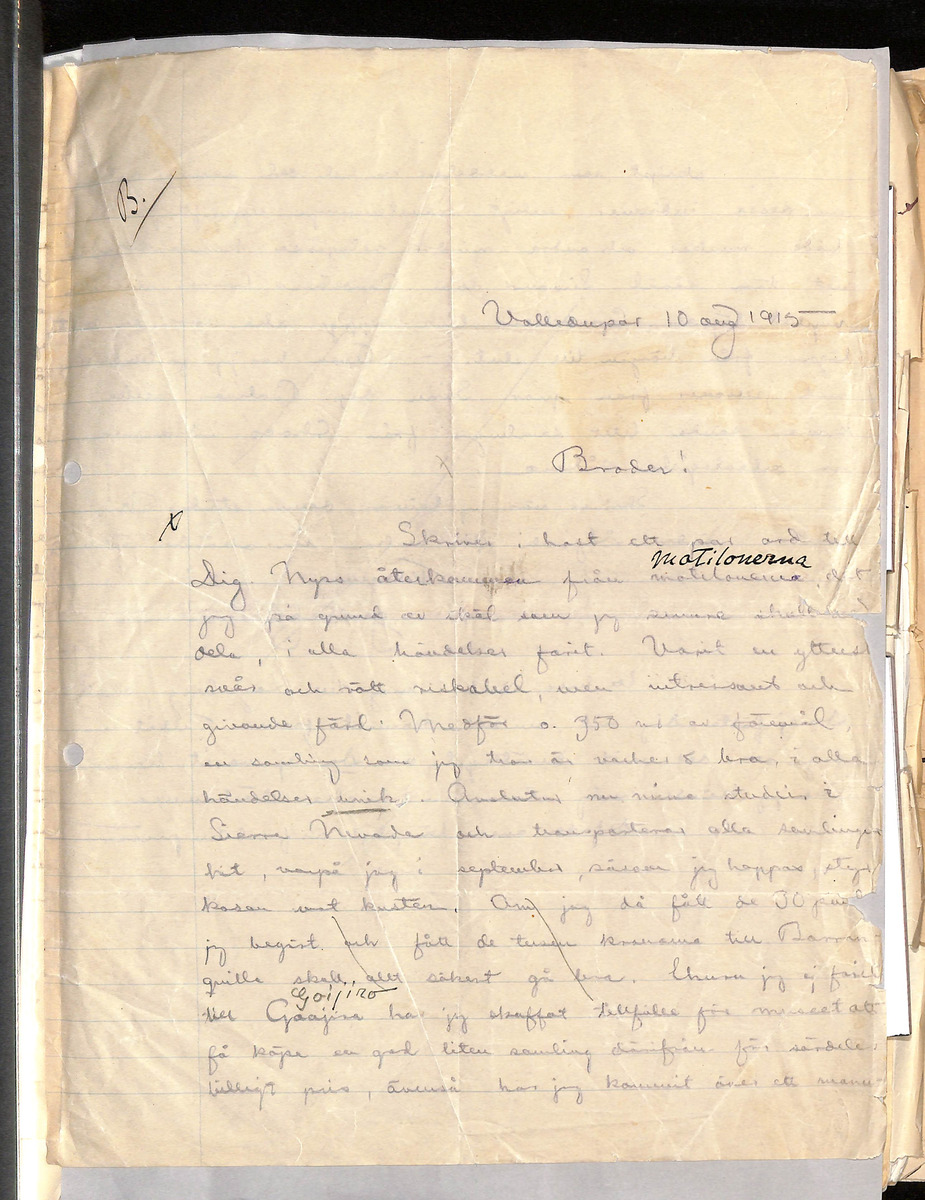 B.
Valledupar 10 aug 1915
Broder!
x
Skriver i hast ett par ord till
motilonerna
Dig. Nyss återkommen från motilonerna, dit
jag på grund av skäl som jag senare skall
dela, i alla händelser farit. Varit en ytterst
svår och rätt riskabel, men intressant och
givande färd. Medför o. 350 nr av föremål,
en samling som jag tror är vacker & bra, i alla
händelser unik. Avslutar nu mina studier i
Sierra Nevada och transporterar alla samlingar
hit, varpå jag i september, såsom jag hoppas, styr
kosan mot kusten. Om jag då fått de 30 pund
jag begärt och fått de tusen kronorna till Barran-
quilla skall allt säkert gå bra. Ehuru jag ej farit
Goijiro
till Goajira har jag skaffat tillfälle för museet att
få köpa en god liten samling därifrån för särdeles
billigt pris, ävenså har jag kommit över ett manu-